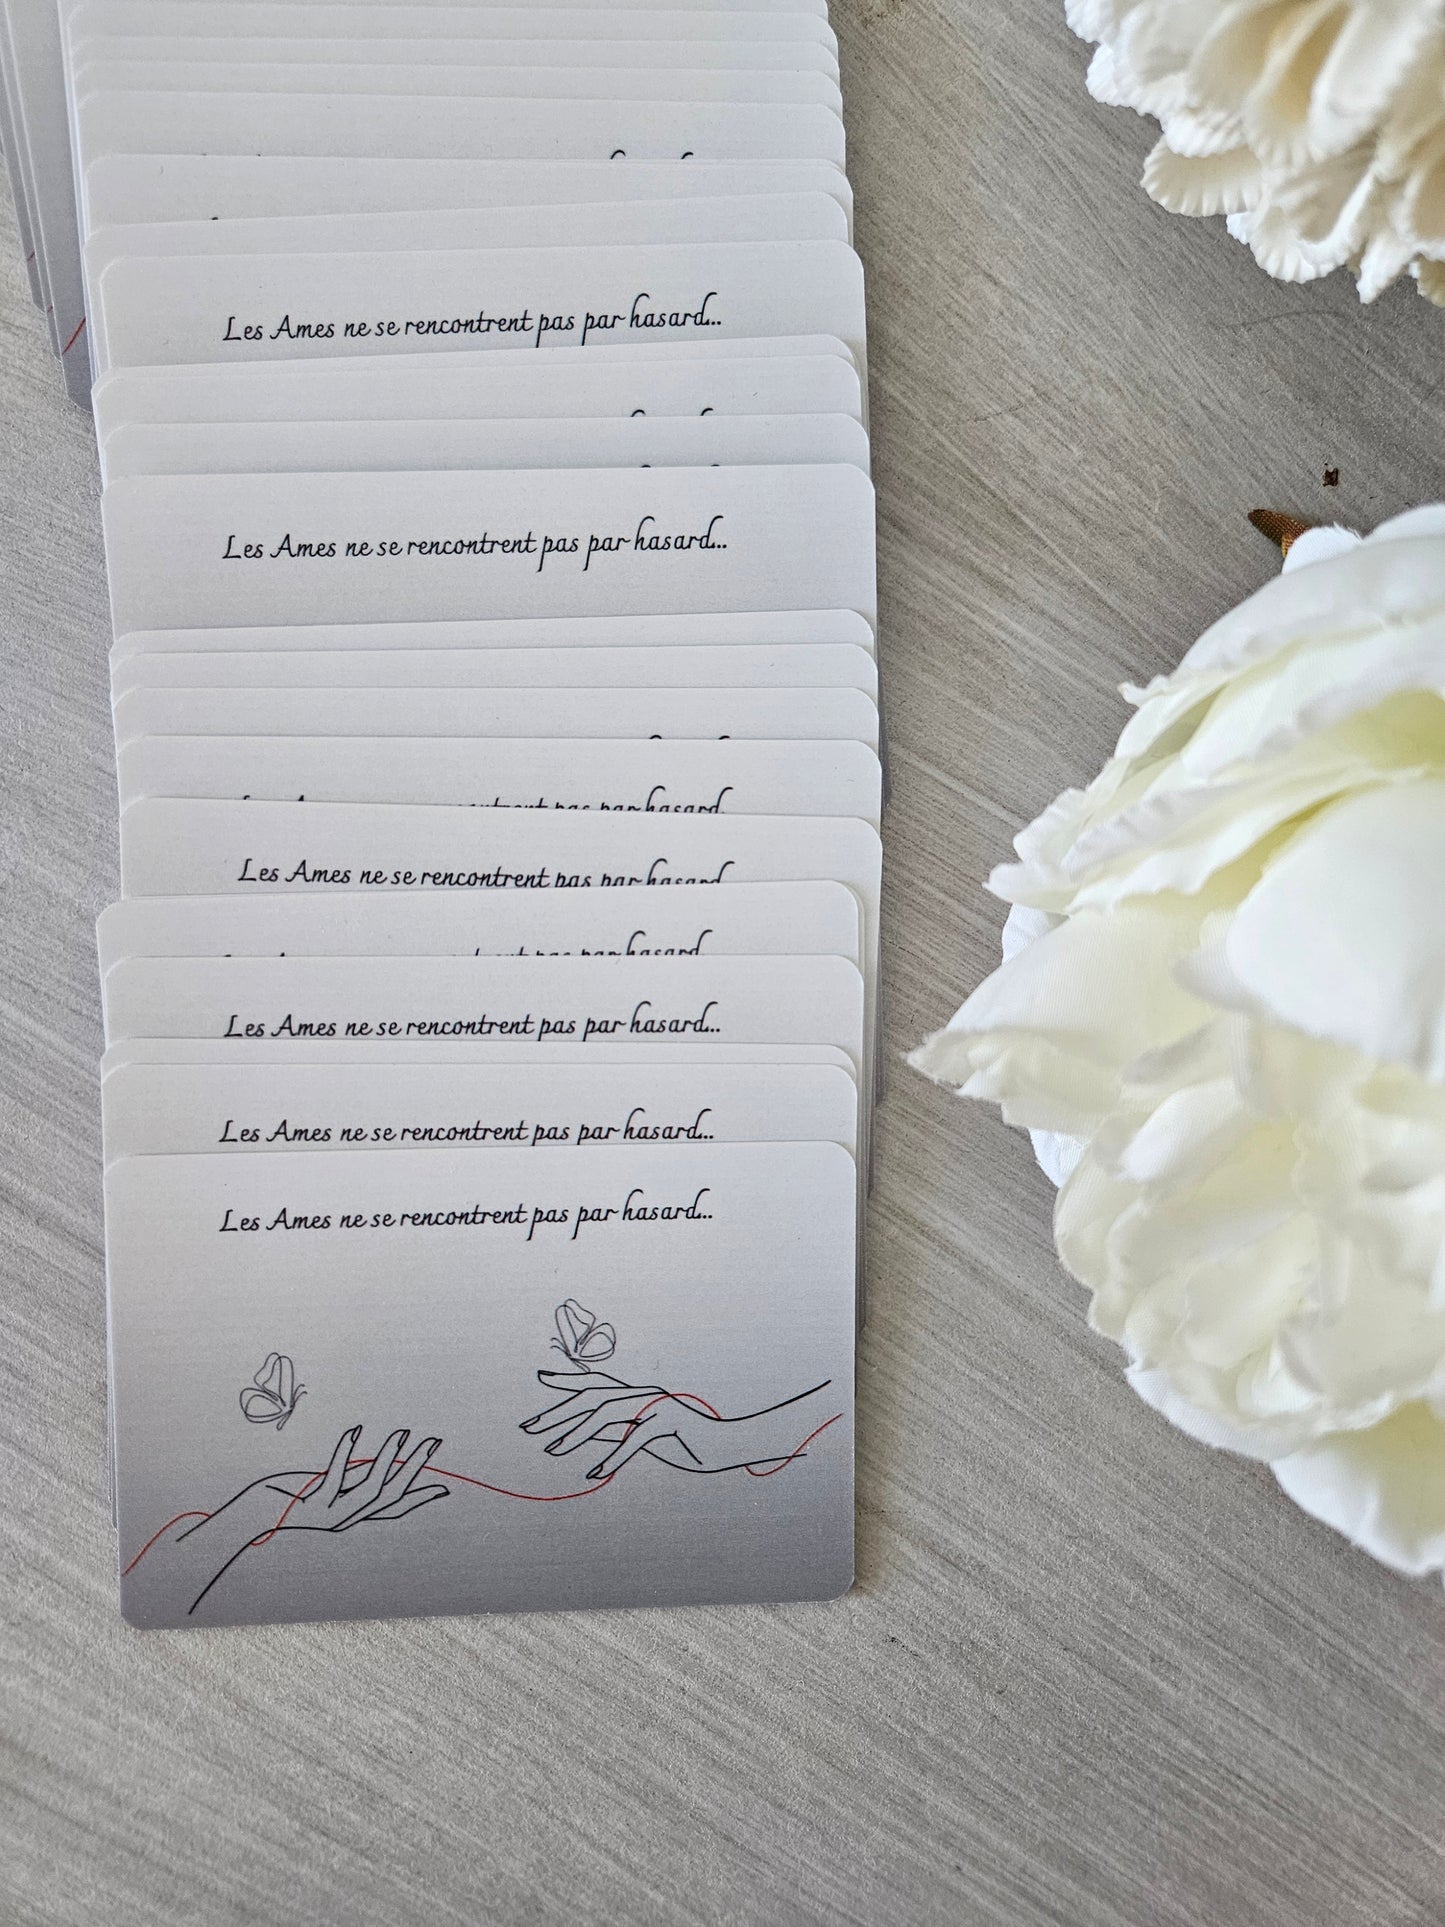 Les Ames ne se rencontrent pas par hasard...
Les Ames ne se rencontrent pas par hasard...
par hasard
Les Ames ne se rencontrent pas par hasard
par hasard
Les Ames ne se rencontrent pas par hasard...
Les Ames ne se rencontrent pas par hasard...
Les Ames ne se rencontrent pas par hasard...